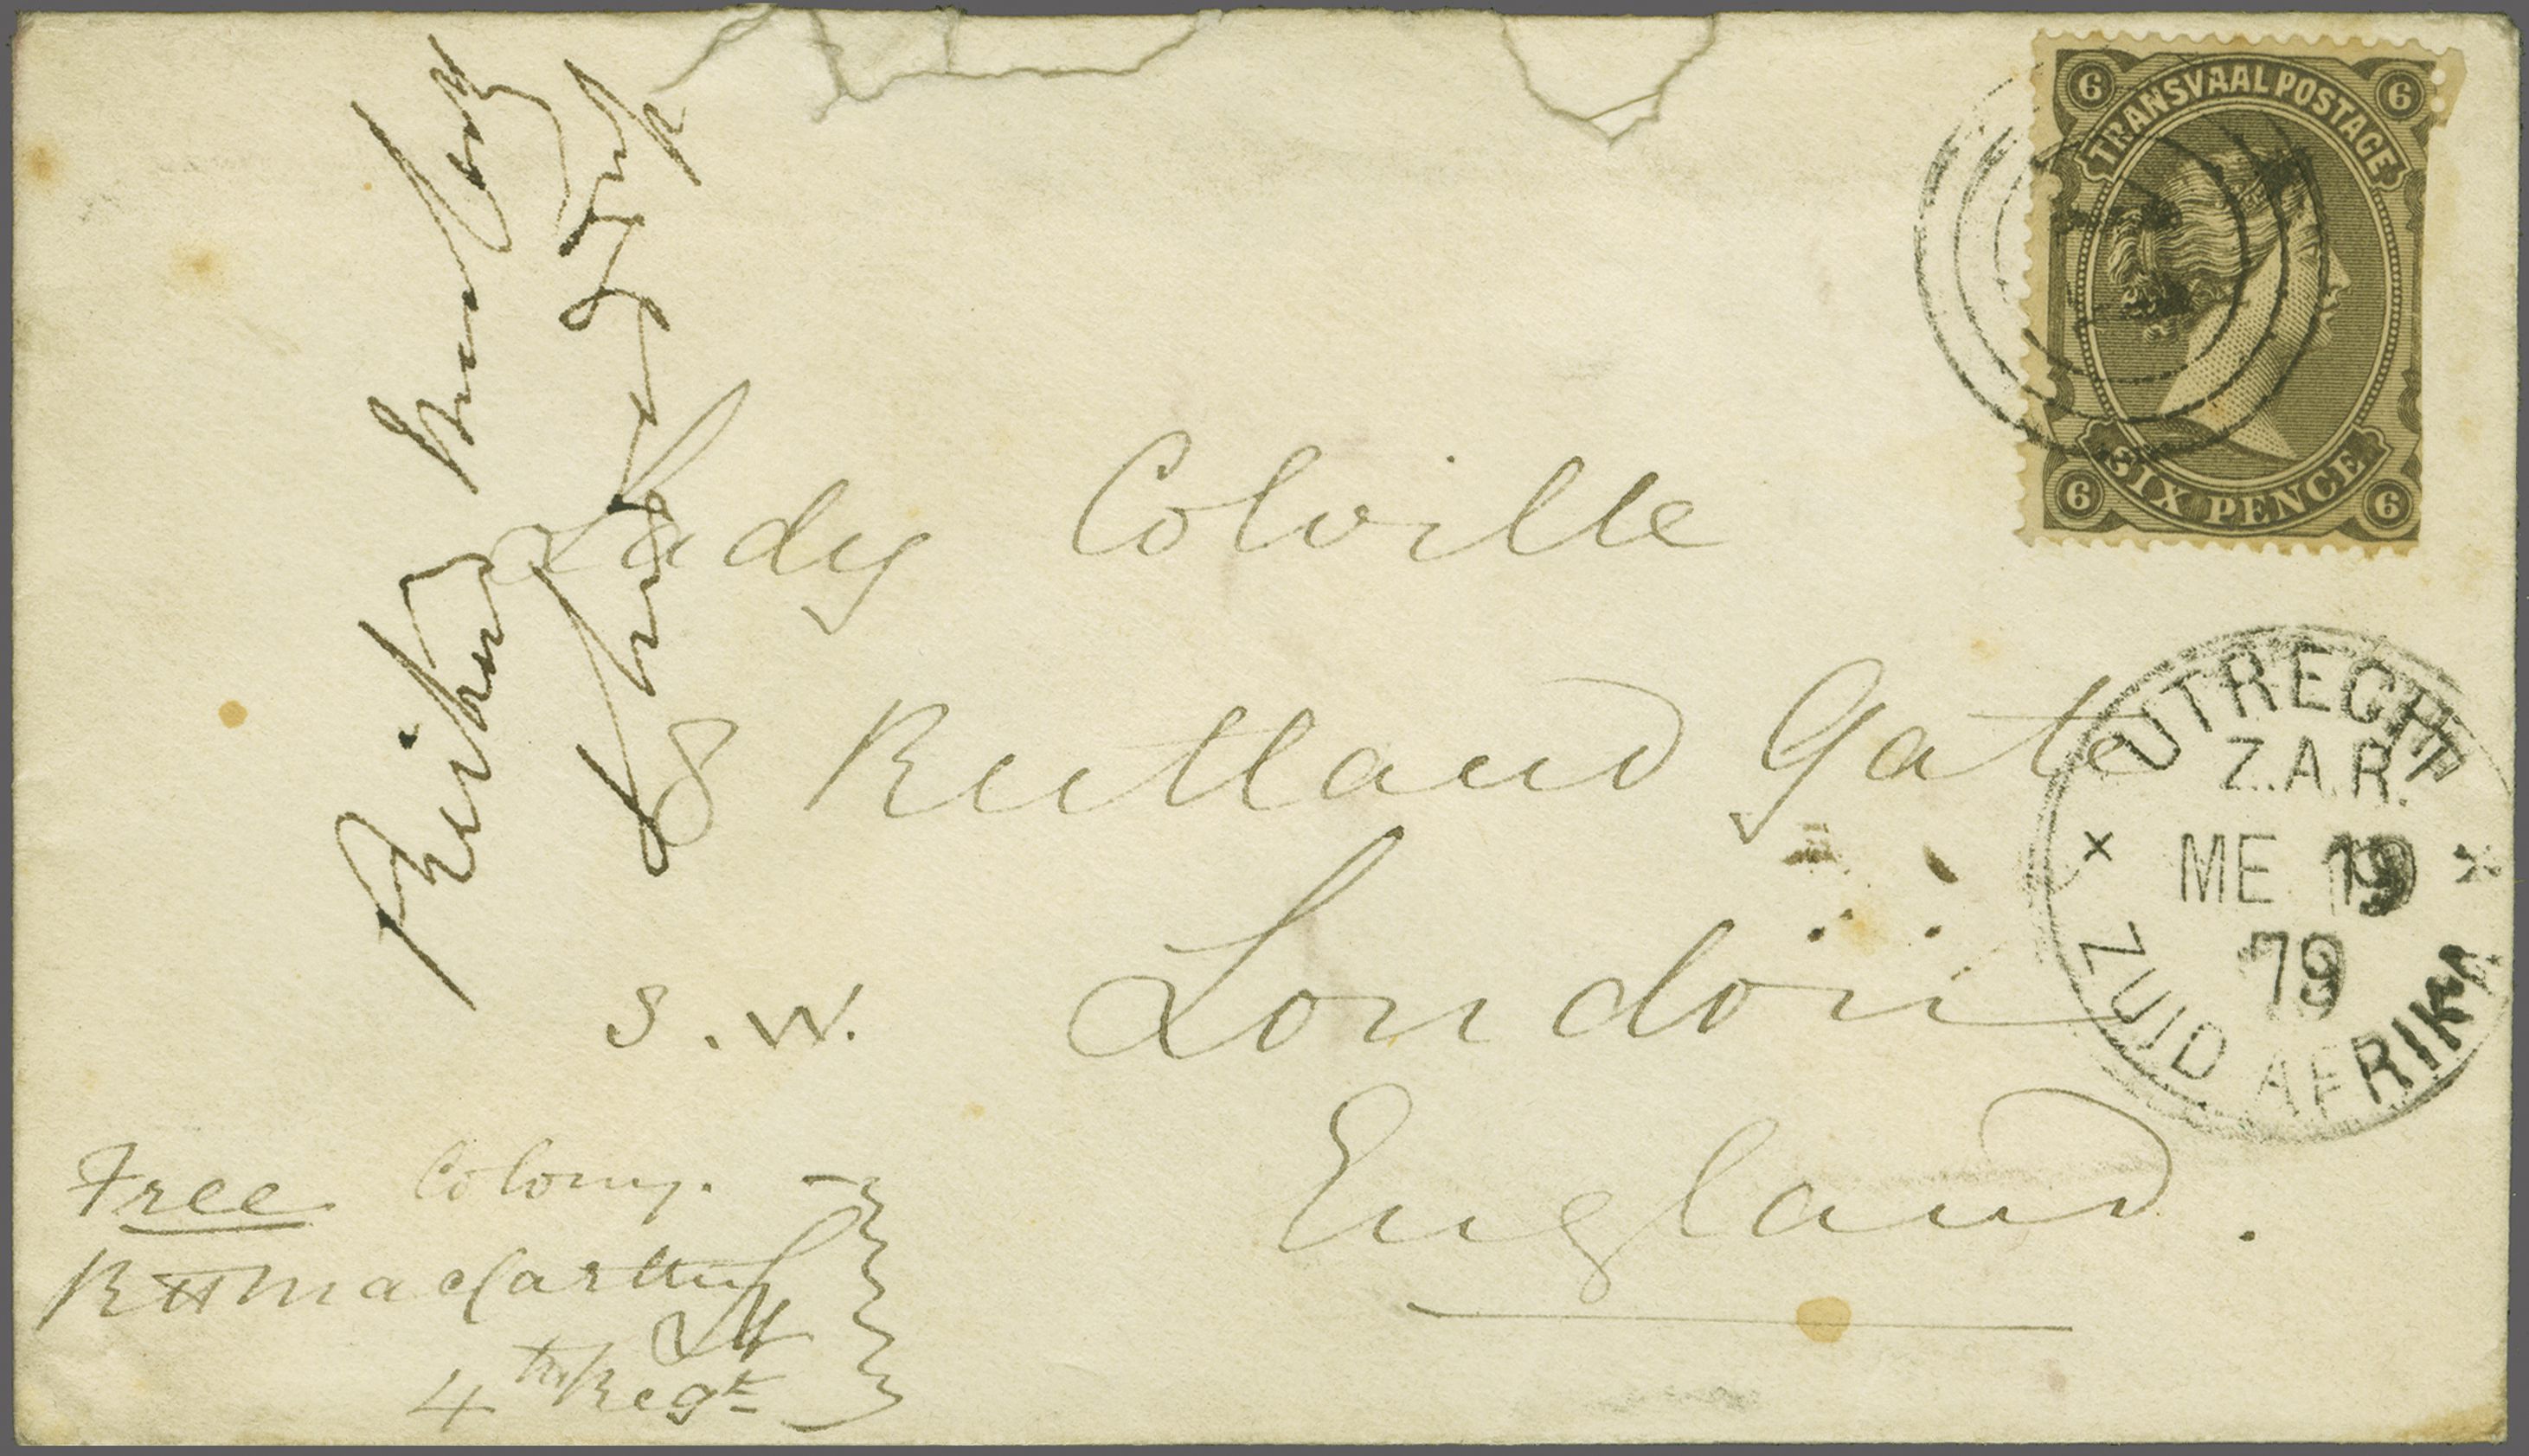 6 TRANSVAAL POSTAGE 6
6 SIX PENCE 6
Lady Colville
8 Rutland Gate
S.W. London
England.
UTRECHT
Z.A.R.
ME 19
79
ZUID AFRIKA
Free Colony.
RHMacCarthy
Lt
4th Regt